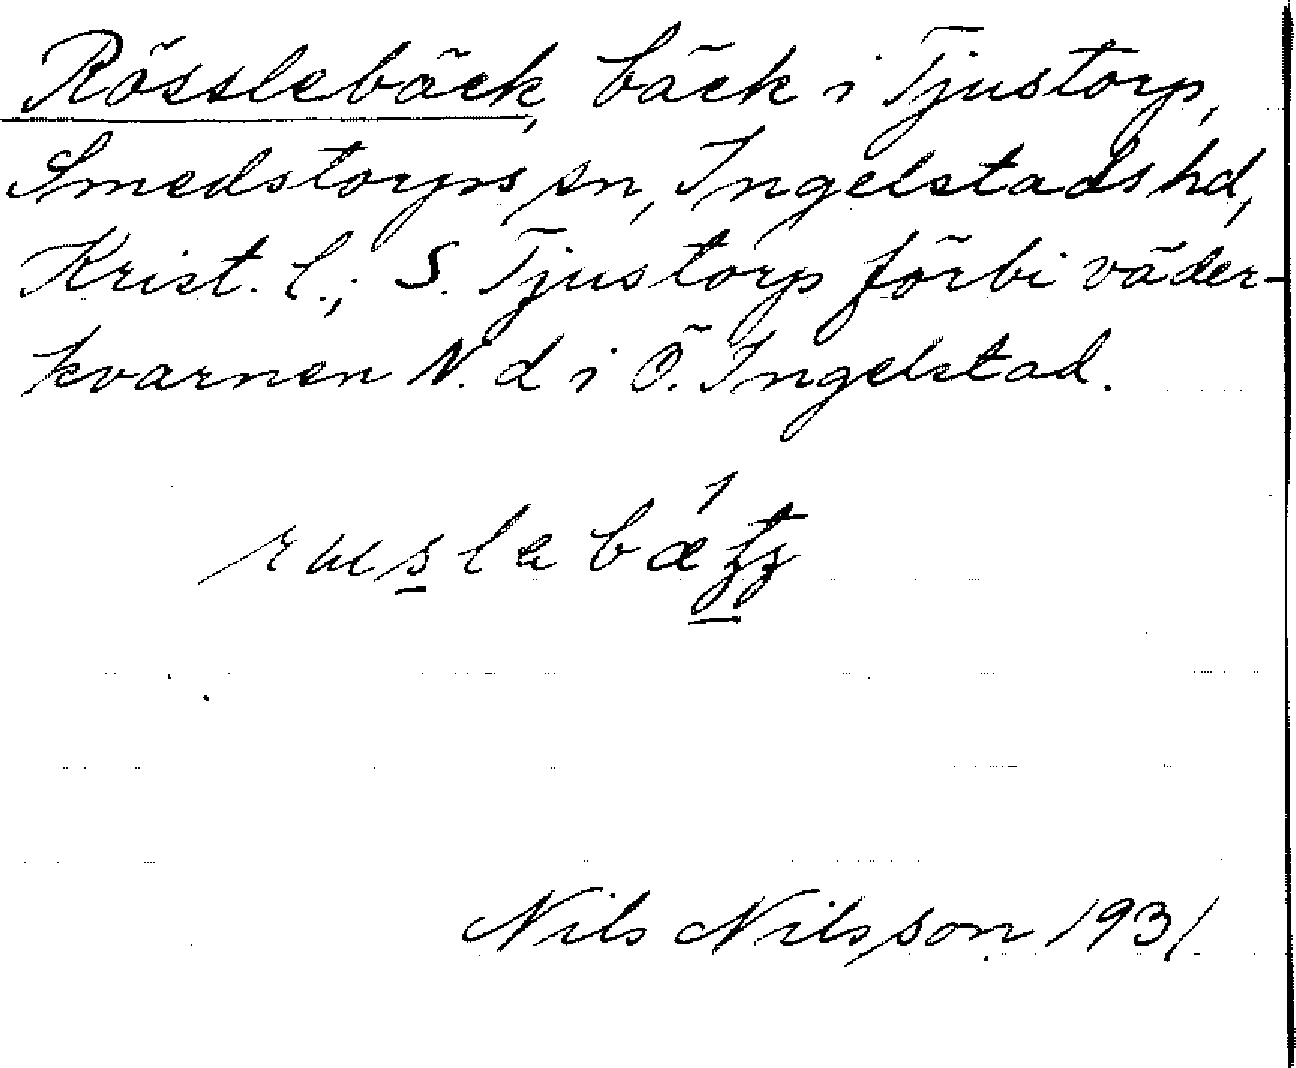 Rösslebäck, bäck i Tjustorp,
Smedstorps sn, Ingelstads hd,
Krist. l.; S. Tjustorp förbi väder-
kvarnen N. d i Ö. Ingelstad.
Nils Nilsson 1931.